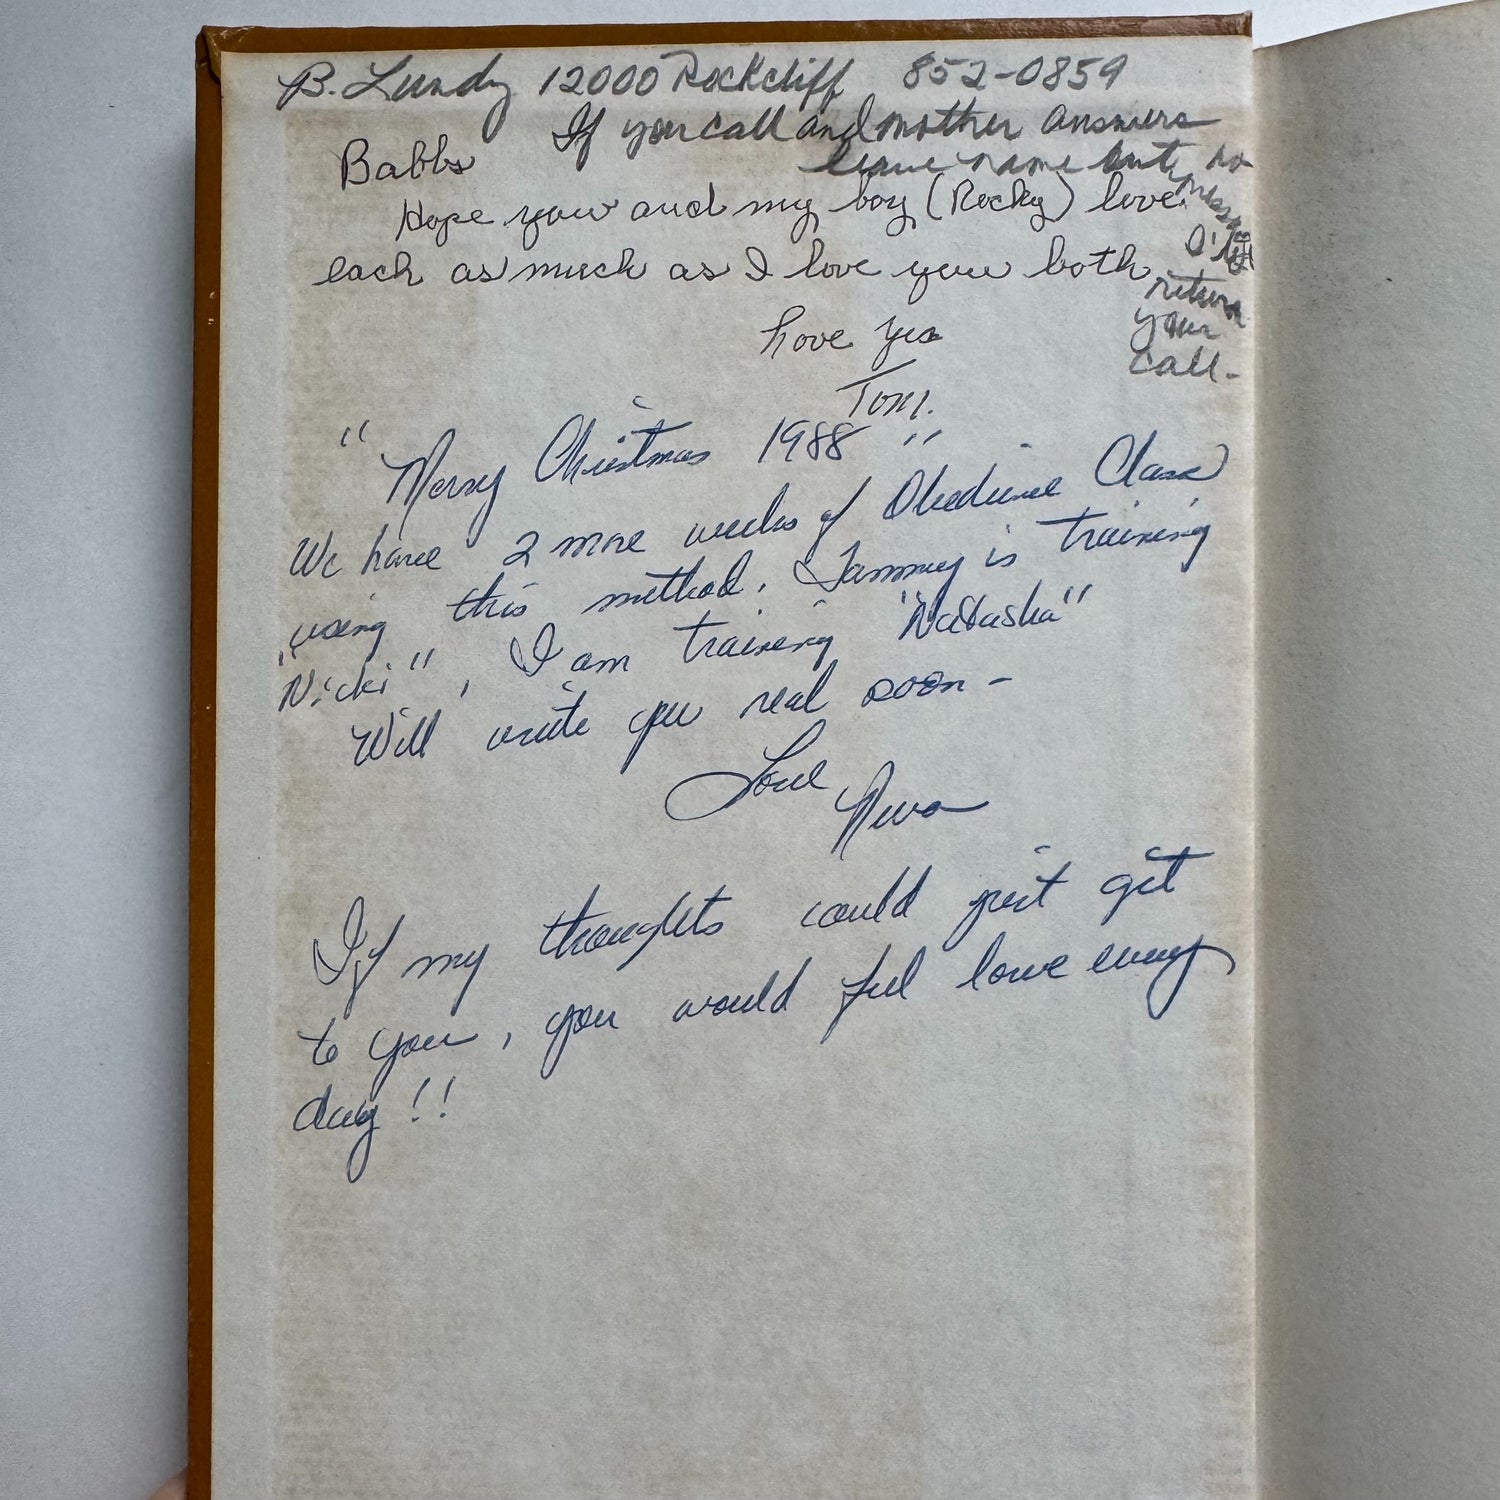 B. Lundy 12000 Rockcliff 852-0859
If you call and mother answers
leave name but no
message
I'll
return
your
call-
Babbs
Hope you and my boy (Rocky) love
each as much as I love you both
Love Yea
Tom.
"Merry Christmas 1988"
We have 2 more weeks of Obedience Class
using this method. Tammy is training
"Nicki", I am training "Natasha"
Will write you real soon-
Love
Neva
If my thoughts could just get
to you, you would feel love every
day!!